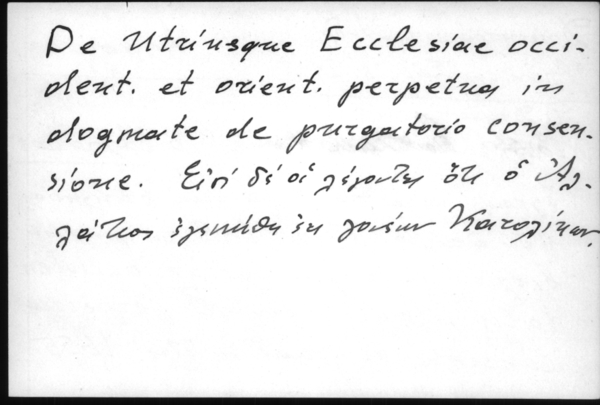 De Utriusque Ecclesiae occi-
dent. et orient. perpetua in
dogmate de purgatorio consen-
sione. Εἰσί δέ οἱ λέγοντες ὅτι ὁ Ἀλ-
λάτιος ἐγεννήθη ἐκ γονέων Κατολίκων.